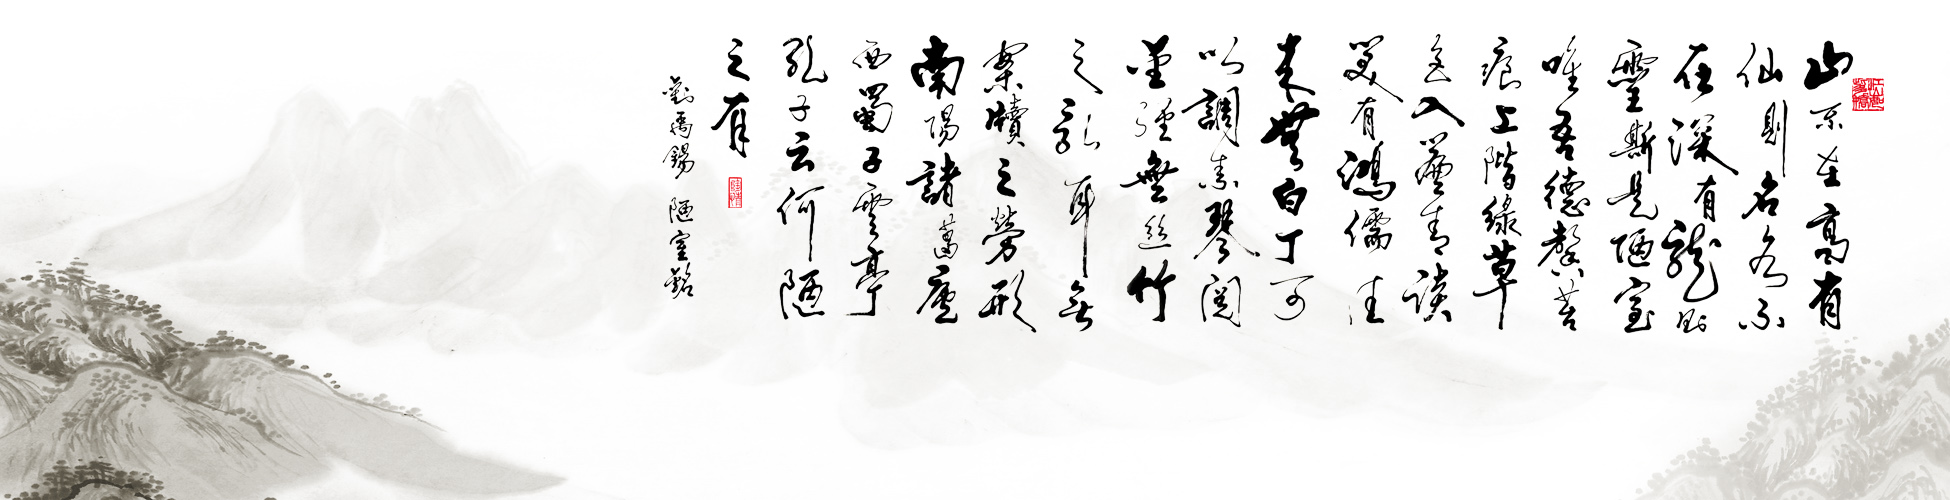 山不在高有
仙則名水不
在深有龍則
靈斯是陋室
唯吾德馨苔
痕上階緑草
色入簾青談
笑有鴻儒往
来無白丁可
以調素琴閲
金經無絲竹
之乱耳無
案牘之勞形
南陽諸葛廬
西蜀子雲亭
孔子云何陋
之有
劉禹錫 陋室銘